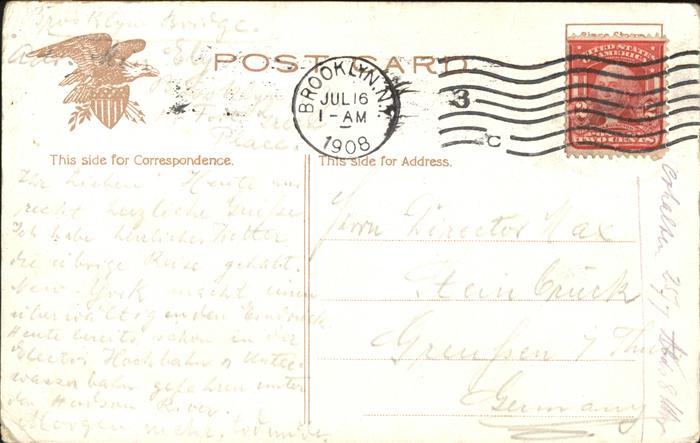 Brooklyn Bridge.
Place.
POST CARD
BROOKLYN, N.Y.
JUL 16
1-AM
1908
3
C
UNITED STATES OF AMERICA
TWO CENTS
This side for Correspondence.
This side for Address.
Ihr Lieben! Heute nur
recht herzliche Grüße
Ich habe herrliches Wetter
die übrige Reise gehabt.
New York macht einen
überwältigenden Eindruck
Heute bereits schon in der
Electr. Hochbahn u Unter
wasserbahn gefahren unter
den Hudson River.
Morgen mehr,
Herrn Director Max
Steinbrück
Greußen i/ Thür
Germany
Erhalten 25/7